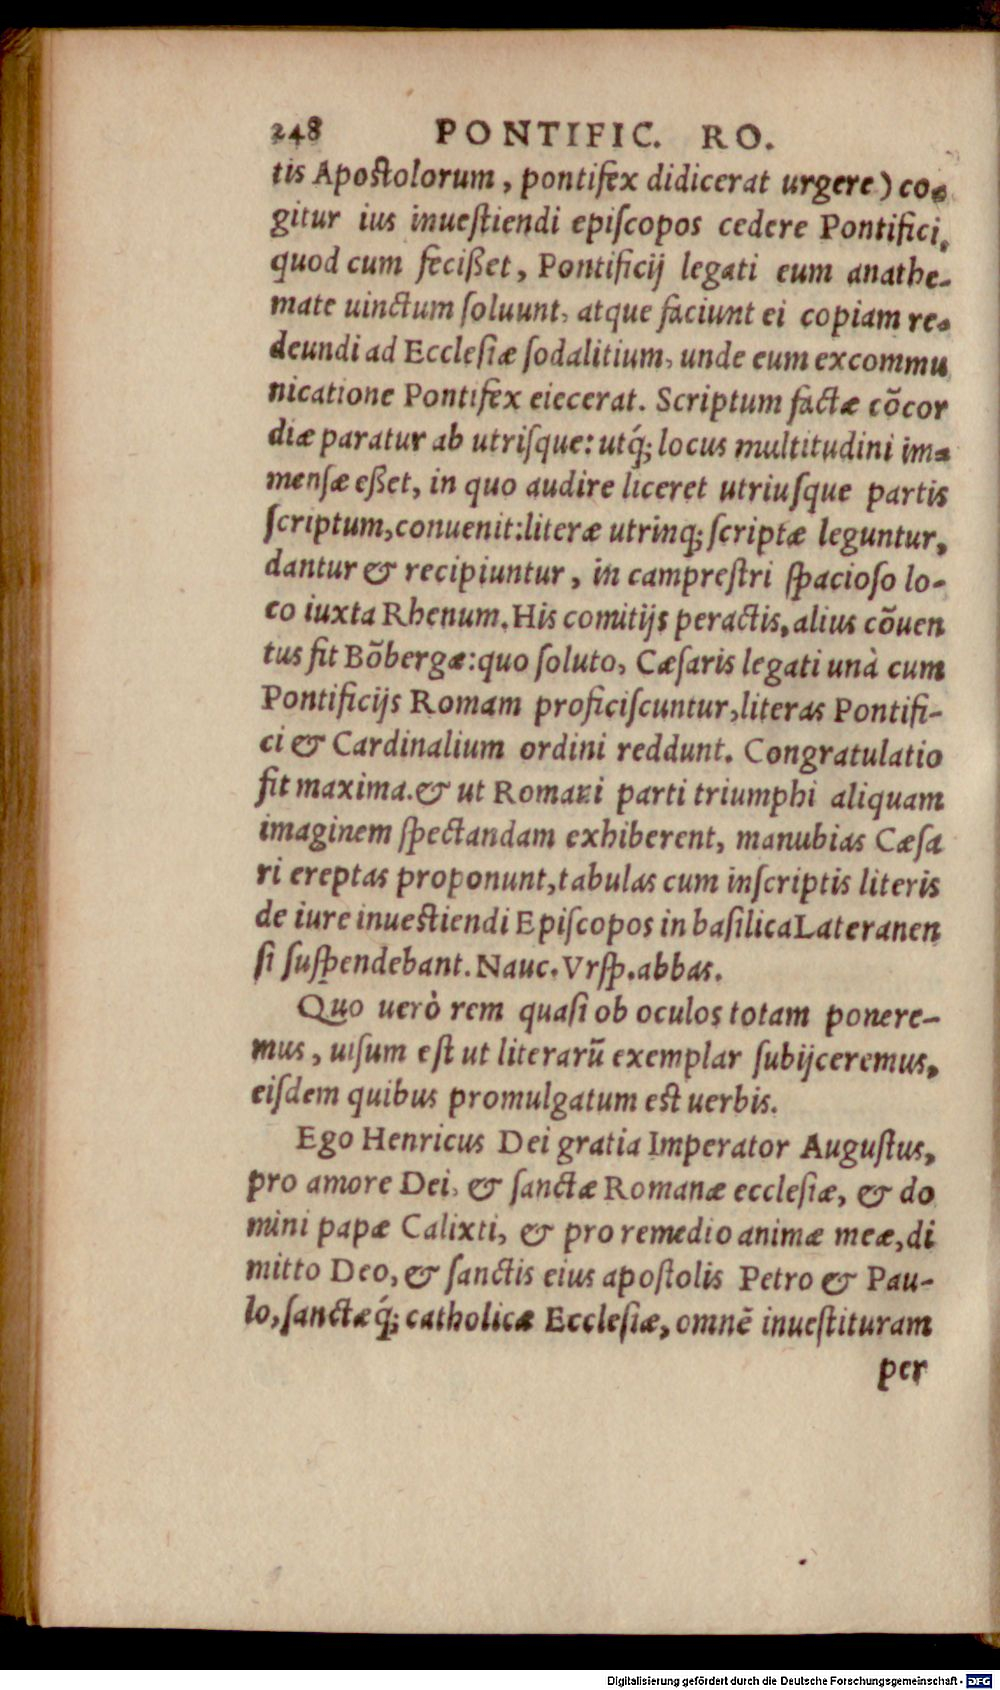 248 PONTIFIC. RO.
tis Apostolorum, pontifex didicerat urgere) co-
gitur ius inuestiendi episcopos cedere Pontifici,
quod cum fecißet, Pontificij legati eum anathe-
mate uinctum soluunt, atque faciunt ei copiam re-
deundi ad Ecclesiæ sodalitium, unde eum excommu
nicatione Pontifex eiecerat. Scriptum factæ cõcor
diæ paratur ab utrisque: utq́; locus multitudini im-
mensæ eßet, in quo audire liceret utriusque partis
scriptum, conuenit: literæ utrinq; scriptæ leguntur,
dantur & recipiuntur, in camprestri spacioso lo-
co iuxta Rhenum. His comitijs peractis, alius cõuen
tus fit Bõbergæ: quo soluto, Cæsaris legati unà cum
Pontificijs Romam proficiscuntur, literas Pontifi-
ci & Cardinalium ordini reddunt. Congratulatio
fit maxima. & ut Romani parti triumphi aliquam
imaginem spectandam exhiberent, manubias Cæsa
ri ereptas proponunt, tabulas cum inscriptis literis
de iure inuestiendi Episcopos in basilica Lateranen
si suspendebant. Nauc. Vrsp. abbas.
Quo uerò rem quasi ob oculos totam ponere-
mus, uisum est ut literarũ exemplar subijceremus,
eisdem quibus promulgatum est uerbis.
Ego Henricus Dei gratia Imperator Augustus,
pro amore Dei, & sanctæ Romanæ ecclesiæ, & do
mini papæ Calixti, & pro remedio animæ meæ, di
mitto Deo, & sanctis eius apostolis Petro & Pau-
lo, sanctæq́; catholicæ Ecclesiæ, omnẽ inuestituram
per
Digitalisierung gefördert durch die Deutsche Forschungsgemeinschaft - DFG